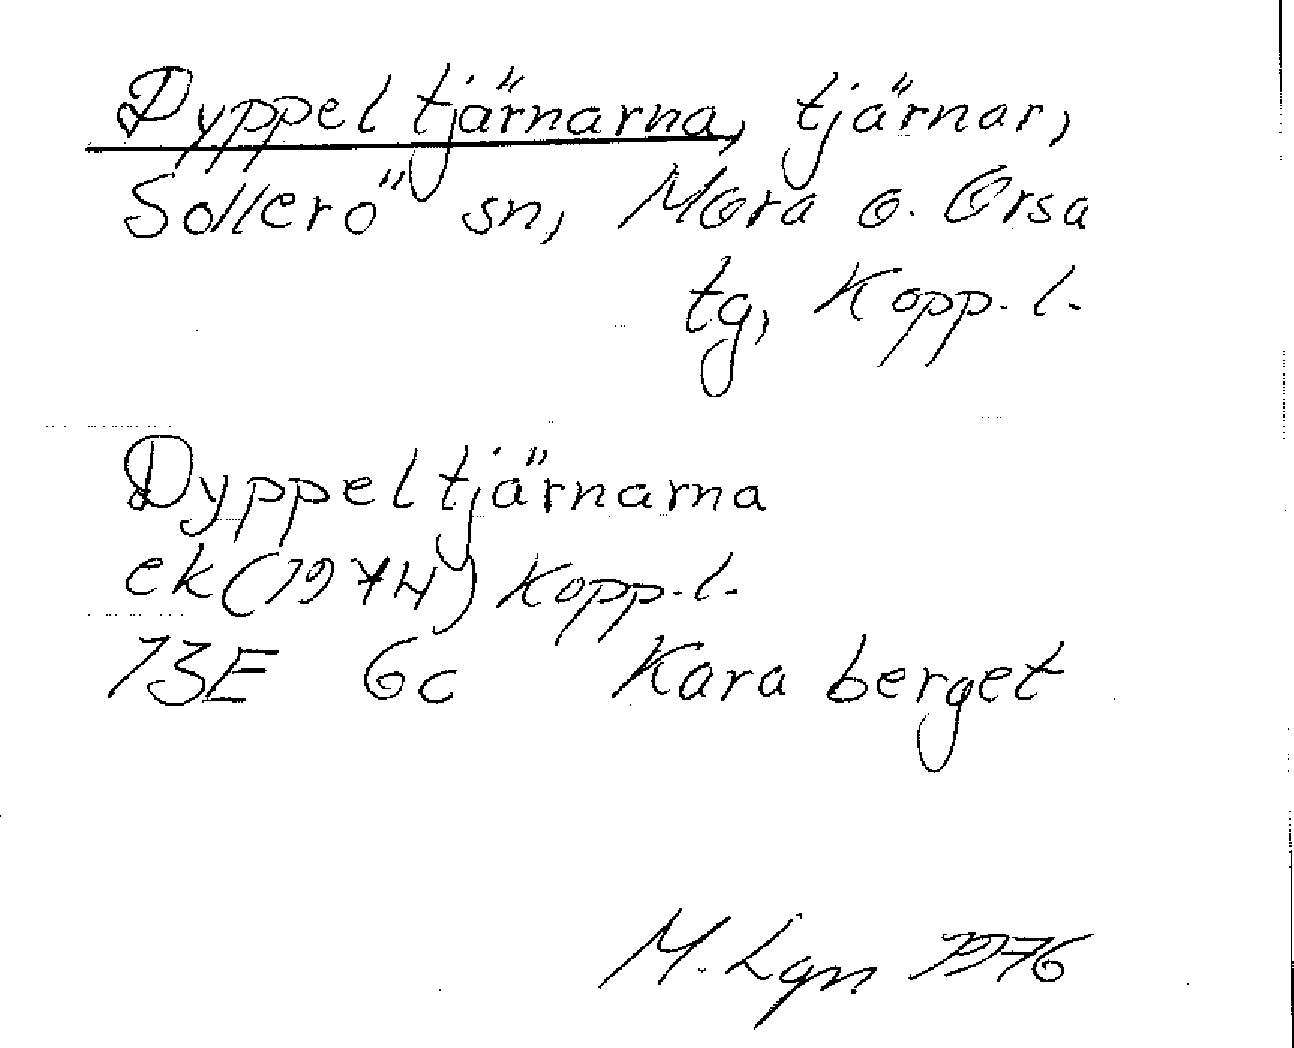 Dyppeltjärnarna, tjärnar,
Sollerö sn, Mora o. Orsa
tg, Kopp. l.
Dyppeltjärnarna
ek (1974) Kopp. l.
13E 6c Karaberget
M. Lgn 1976